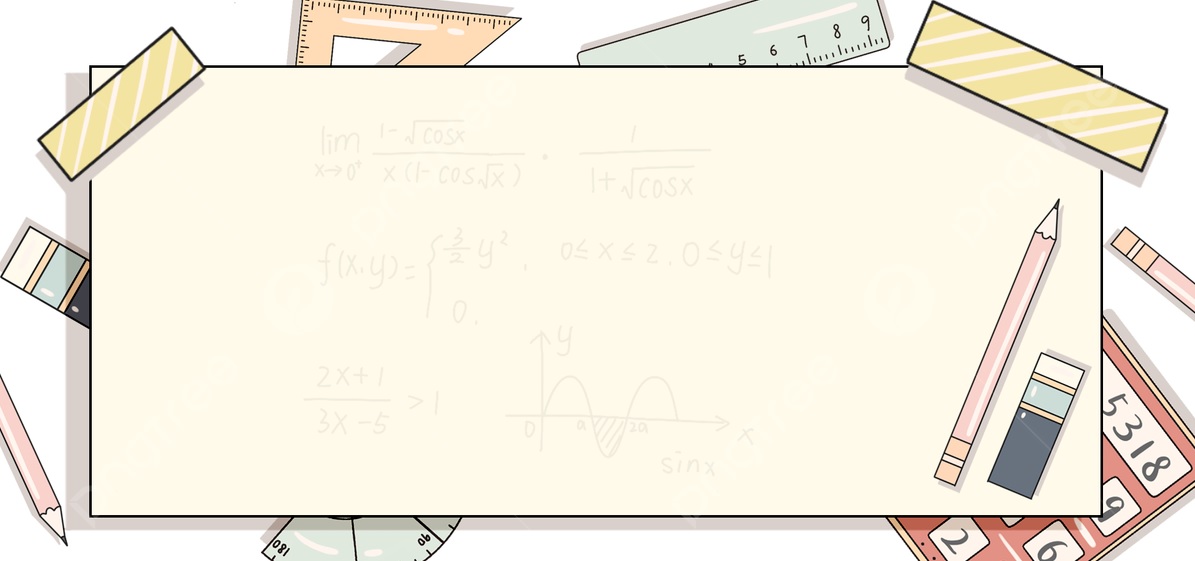 5 6 7 8 9
lim x→0⁺ (1-√cosx)/(x(1-cos√x)) · 1/(1+√cosx)
f(x.y)={ 3/2 y², 0≤x≤2. 0≤y≤1
0.
(2x+1)/(3x-5) >1
y
0 a 2a x
sinx
5318
9
2 6
180 90